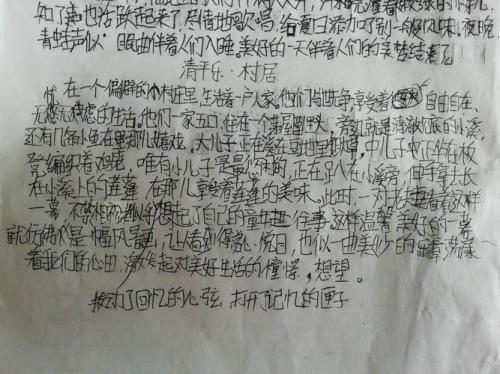 知了声也活跃起来了,尽情地唱歌唱,给夏日添加了别一般风味。夜晚,
青蛙声似 眠曲伴着人们入睡。美好的一天伴着人们的美梦结束了
清平乐·村居
在一个偏僻的小村庄里,生活着一户人家。他们与世无争,享受着 自由自在、
无忧无虑的生活。他们一家五口住在一个茅屋里头,旁边就是清澈见底的小溪,
还有几条小鱼在里面嬉戏。大儿子正在豆地里锄草,中儿子也正坐在板
凳编织着鸡笼,唯有小儿子是最 的,正在趴在小溪旁,伸手拿生长
在小溪上的莲蓬,在那儿享受着莲蓬的美味。此时,一对老夫妻看着这样
一幕,不禁 想起了自己的童年 往事,这样温馨美好的一幕
就 是一幅风景画,让人看到得赏心悦目,也似一曲美妙的乐章,荡漾
着我们的心田,激发起对美好生活的憧憬,想望。
拨动了回忆的心弦,打开了记忆的匣子